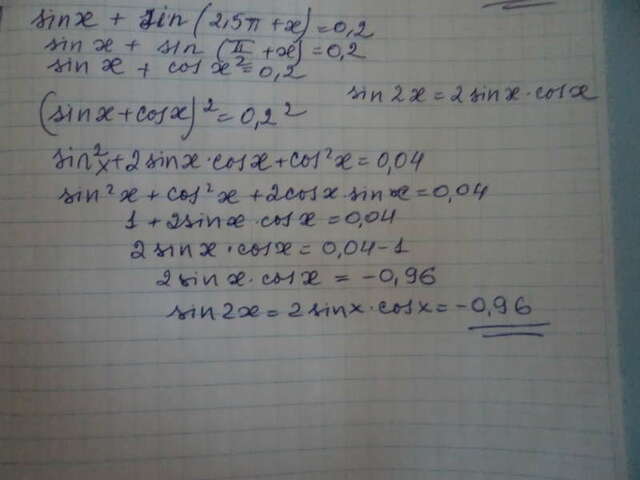 sin x + sin (2,5π + x) = 0,2
sin x + sin (π/2 + x) = 0,2
sin x + cos x = 0,2
sin 2x = 2 sin x · cos x
(sin x + cos x)² = 0,2²
sin²x + 2 sin x · cos x + cos²x = 0,04
sin²x + cos²x + 2 cos x · sin x = 0,04
1 + 2 sin x · cos x = 0,04
2 sin x · cos x = 0,04 - 1
2 sin x · cos x = -0,96
sin 2x = 2 sin x · cos x = -0,96